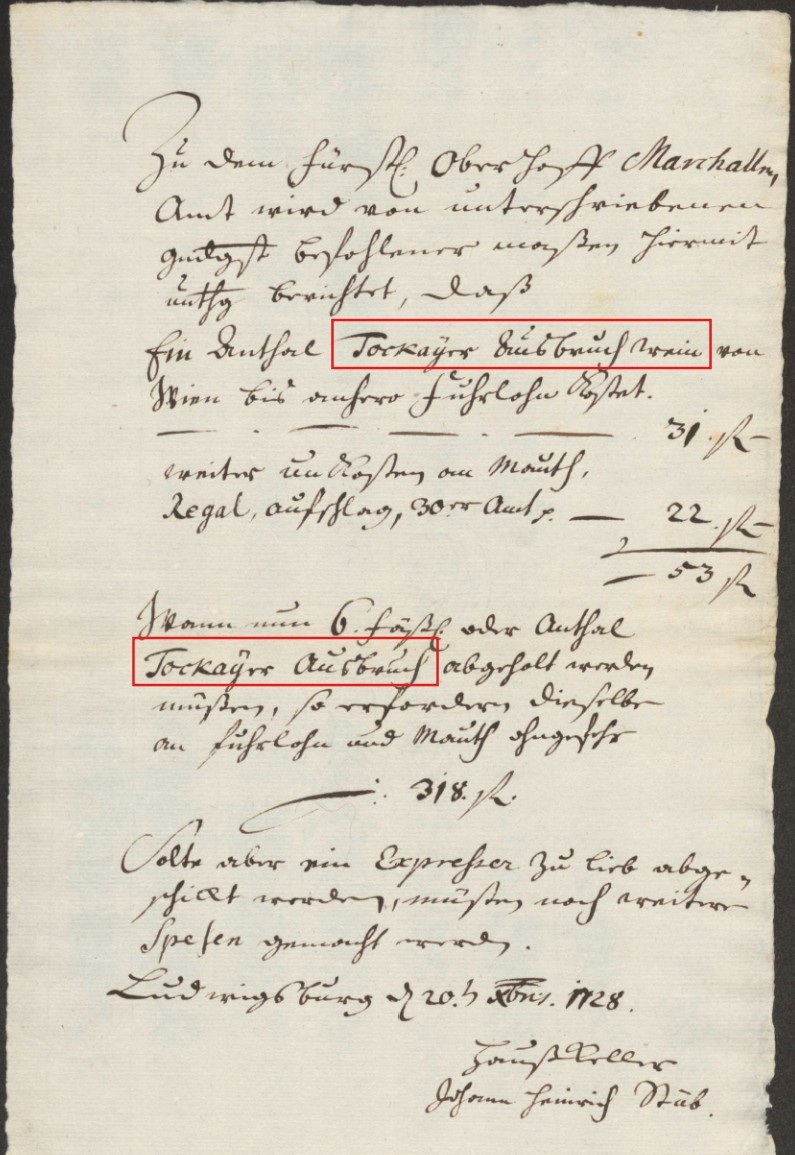 Zu dem Fürstl: Ober Hoff Marchallen
Amt wird von unterschriebenen
gndgst befohlener maßen hiermit
unthg berichtet, daß
Ein Anthal Tockaÿer Ausbruch wein von
Wien bis anhero Fuhrlohn Kostet.
31. fl
weiter unKosten an Mauth,
Regal, aufschlag, 30er Amt p. — 22. fl
— 53 fl
Wann nun 6. Fäßl. oder Anthal
Tockaÿer Ausbruch abgeholt werden
müßen, so erfordern dieselbe
an fuhrlohn und Mauth ohngefehr
318. fl.
Solte aber ein Expresser zu lieb abge-
schikt werden, müßen noch weitere
Spesen gemacht werden.
Ludwigsburg d 20. Xbris. 1728.
HaußKeller
Johann Heinrich Stüb.